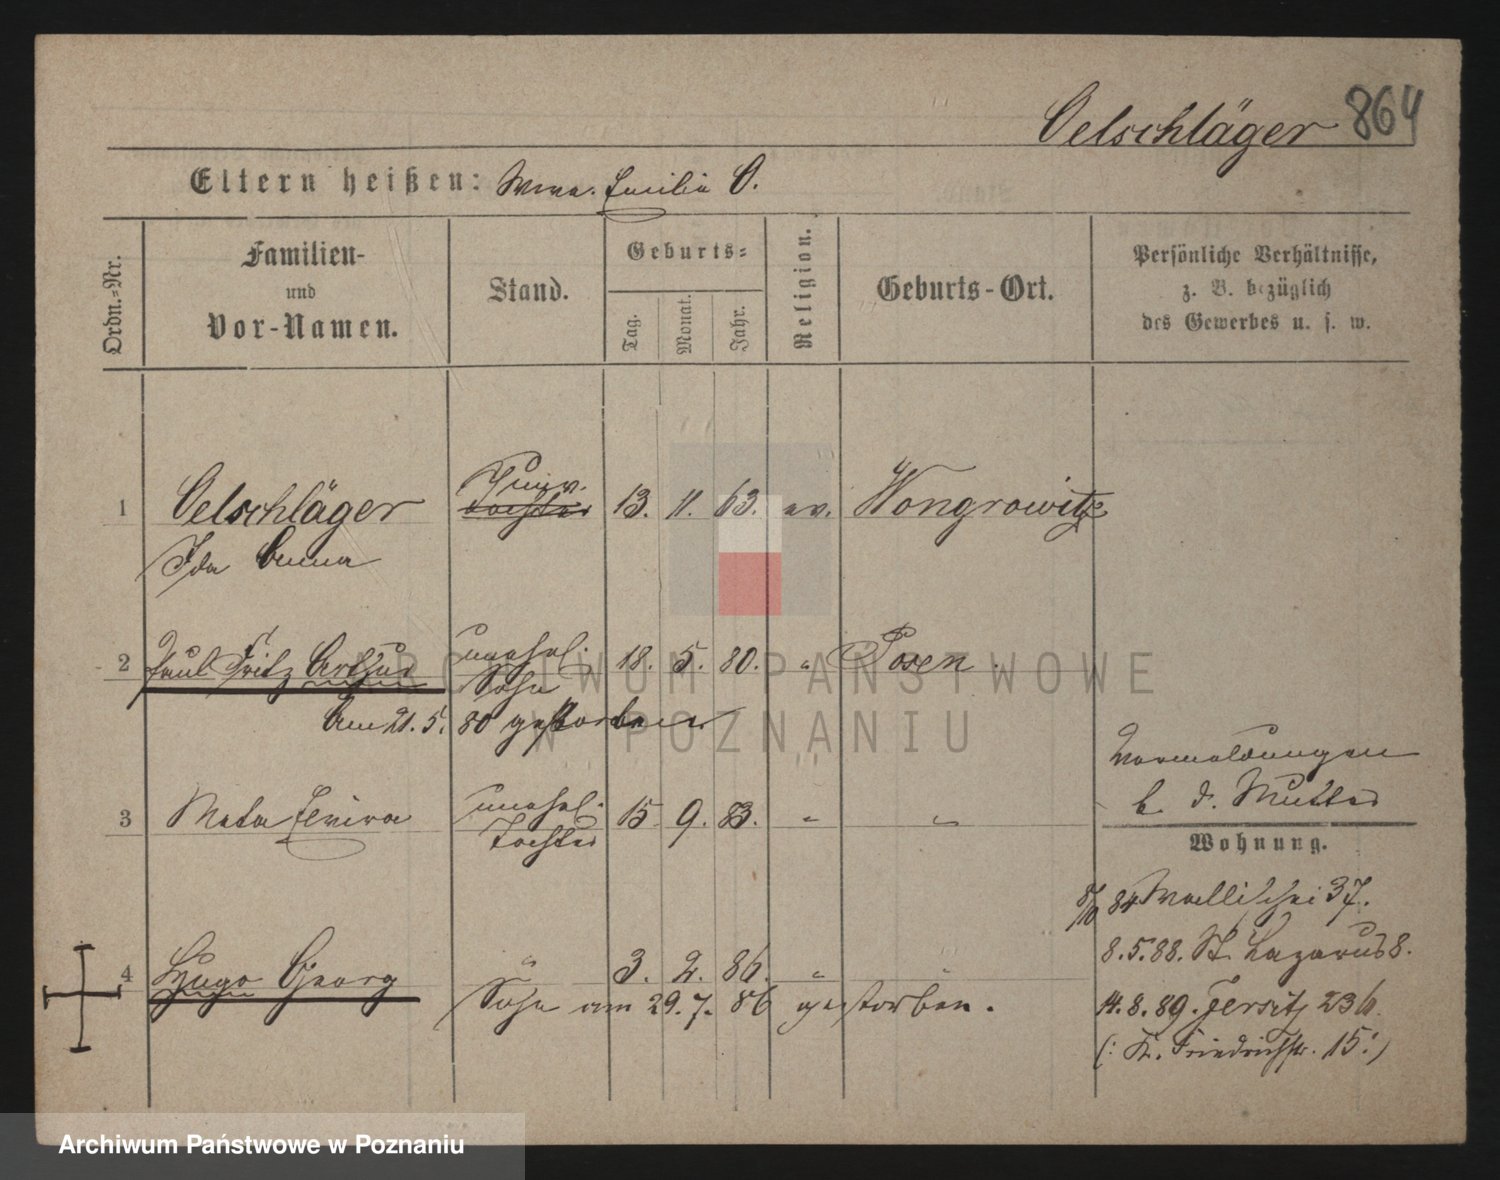 Oelschläger 864
Eltern heißen: Wwe. Emilie O.
Ordn.-Nr.
Familien-
und
Vor-Namen.
Stand.
Geburts-
Tag.
Monat.
Jahr.
Religion.
Geburts-Ort.
Persönliche Verhältnisse,
z. B. bezüglich
des Gewerbes u. s. w.
1 Oelschläger tochter 13. 11. 63. ev. Wongrowitz
Ida Anna
2 Paul Fritz Arthur unehel. Sohn 18. 5. 80. " Posen.
Am 21. 5. 80 gestorben
3 Meta Elvira unehel. Tochter 15. 9. 83. " "
Vormeldungen
b. d. Mutter
Wohnung.
8/10 84 Wallischei 37.
8. 5. 88. St. Lazarus 8.
14. 8. 89. Jersitz 236.
(: Kl. Friedrichstr. 15:)
4 Hugo Georg " 3. 2. 86. "
Sohn am 29. 7. 86 gestorben.
ARCHIWUM PAŃSTWOWE
W POZNANIU
Archiwum Państwowe w Poznaniu